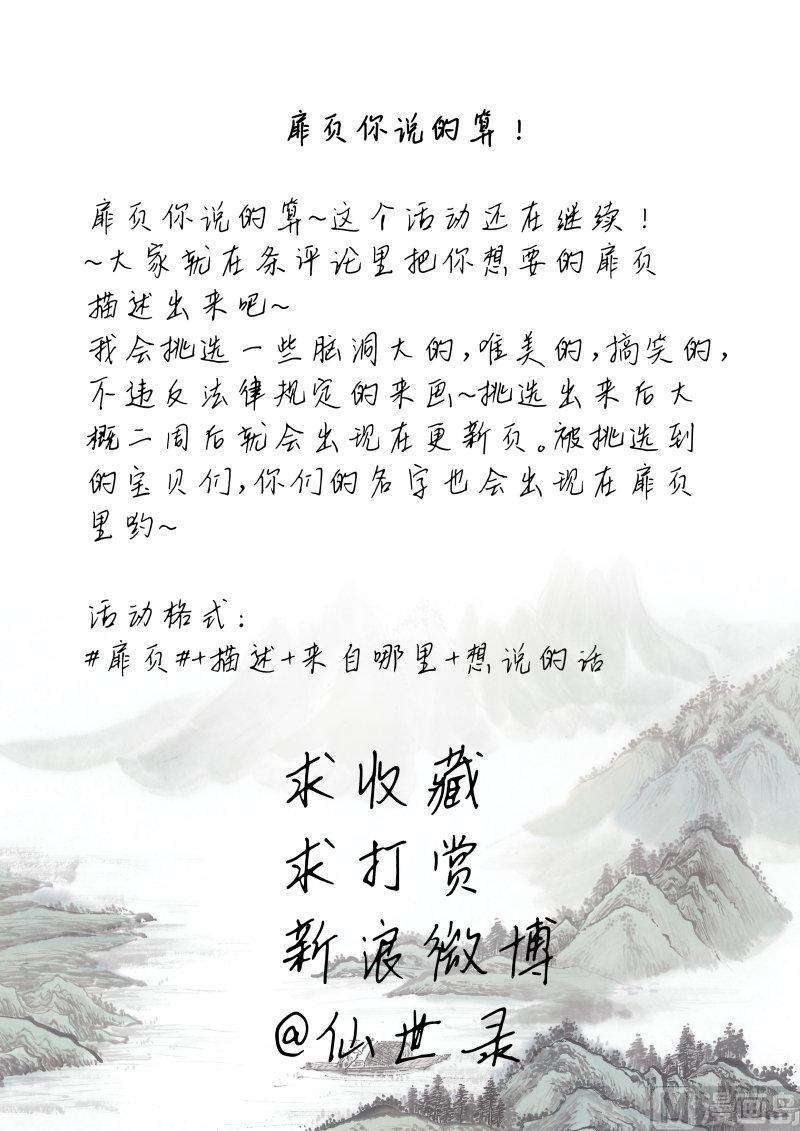 扉页你说的算！
扉页你说的算~这个活动还在继续！
~大家就在条评论里把你想要的扉页
描述出来吧~
我会挑选一些脑洞大的,唯美的,搞笑的,
不违反法律规定的来画~挑选出来后大
概二周后就会出现在更新页。被挑选到
的宝贝们,你们的名字也会出现在扉页
里哟~
活动格式：
#扉页#+描述+来自哪里+想说的话
求收藏
求打赏
新浪微博
@仙世录
漫画岛